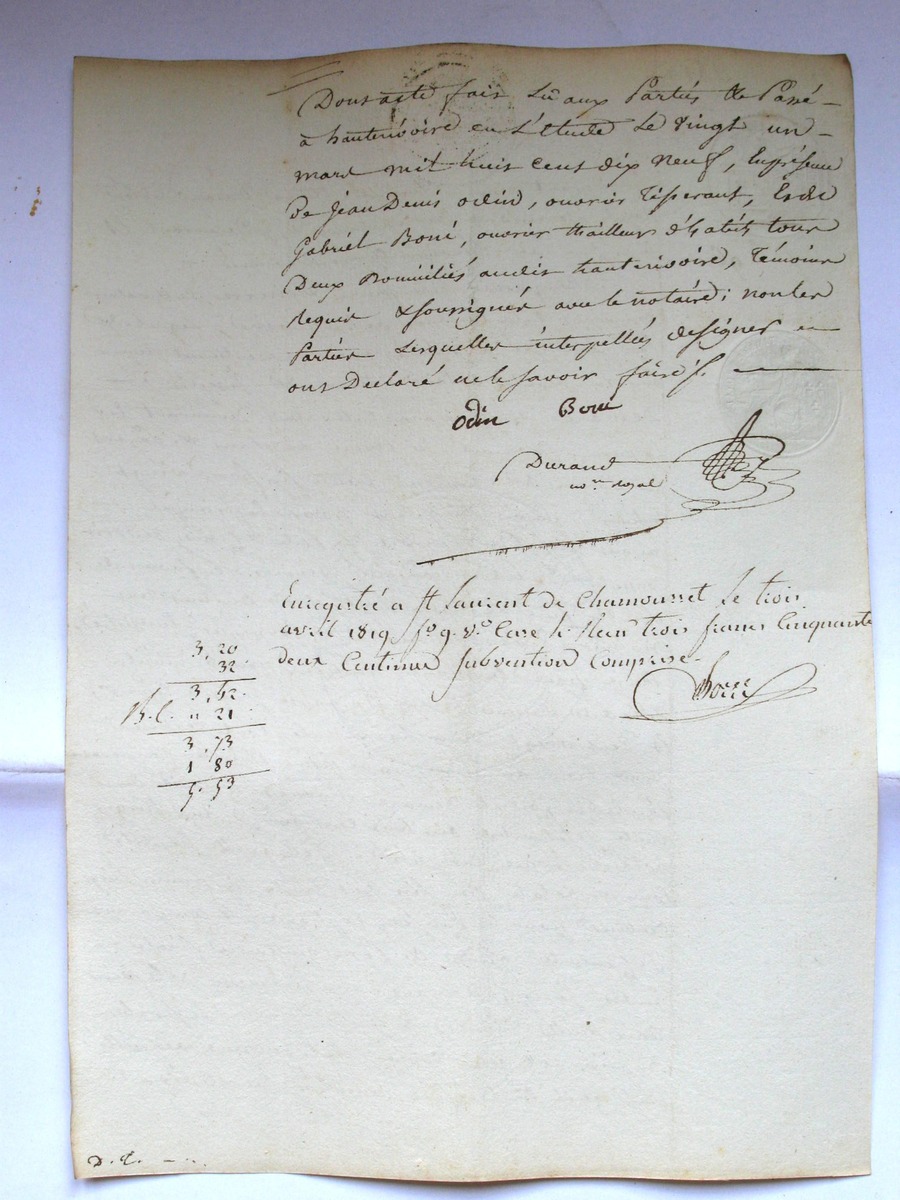 Dont acte fait Lû aux Parties & Passé
à hauterivoire en L'étude Le vingt un
mars mil huit cent dix neuf, En présence
de Jean Denis odin, ouvrier Tisserant, Et de
Gabriel Boni, ouvrier thailleur d'habits tous
Deux Domiciliés audit hauterivoire, Témoins
requis & soussignés avec le notaire; non les
Parties Lesquelles interpellées de signer en
ont Déclaré ne le savoir faire ∫.
odin Boni
Durand
no.re royal
Enregistré a St Laurent de Chamousset Le trois
avril 1819 fo. 9. Vo. Case 1. Reçu trois francs Cinquante
deux Centimes subvention Comprise.
3,20
32
3,52.
21
3,73
1 80
5.53